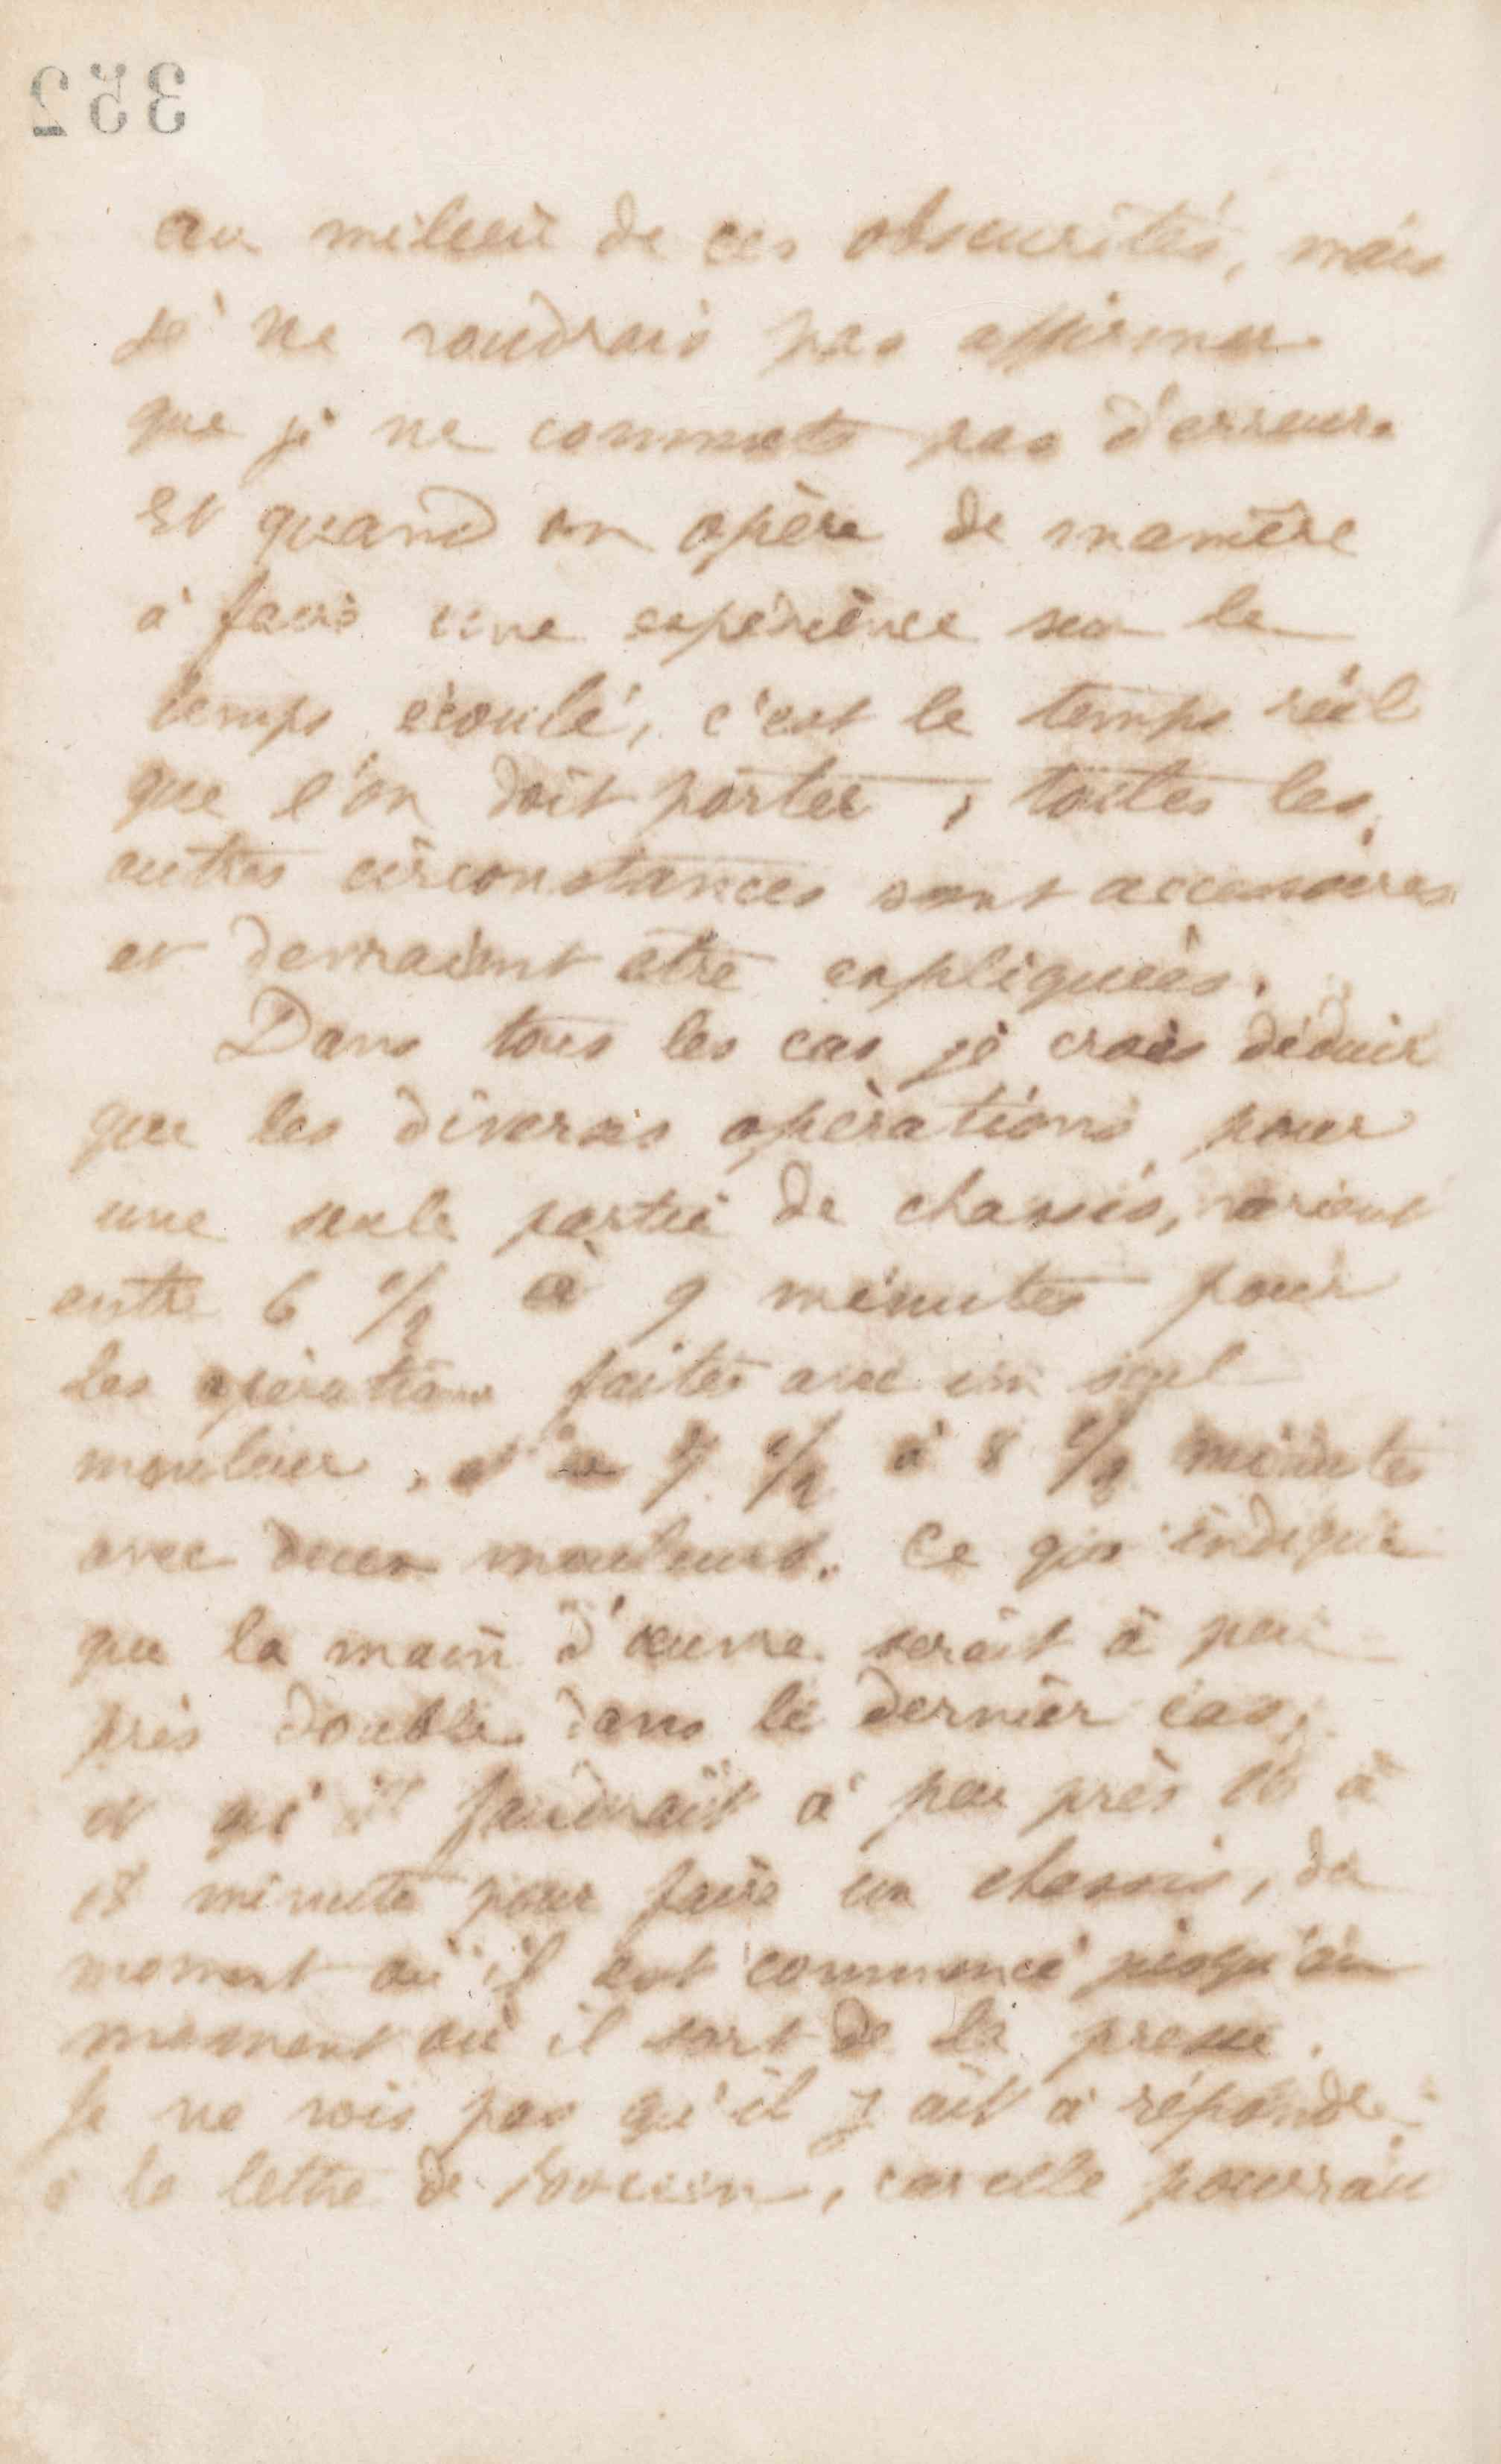 352
au milieu de ces obscurités, mais
je ne voudrais pas affirmer
que je ne commets pas d'erreur.
Et quand on opère de manière
à faire une expérience sur le
temps écoulé, c'est le temps réel
que l'on doit porter, toutes les
autres circonstances sont accessoires
et devraient être expliquées.
Dans tous les cas je crois déduire
que les diverses opérations pour
une seule partie de chassis, varient
entre 6 1/2 à 9 minutes pour
les opérations faites avec un seul
mouleur, et 7 1/2 à 8 1/2 minutes
avec deux mouleurs. Ce qui indique
que la main d'œuvre serait à peu
près double dans le dernier cas,
et qu'il faudrait à peu près 16 à
18 minute pour faire un chassis, du
moment où il est commencé jusqu'au
moment où il sort de la presse.
Je ne vois pas qu'il y ait à répondre
à la lettre de, car elle pourrait